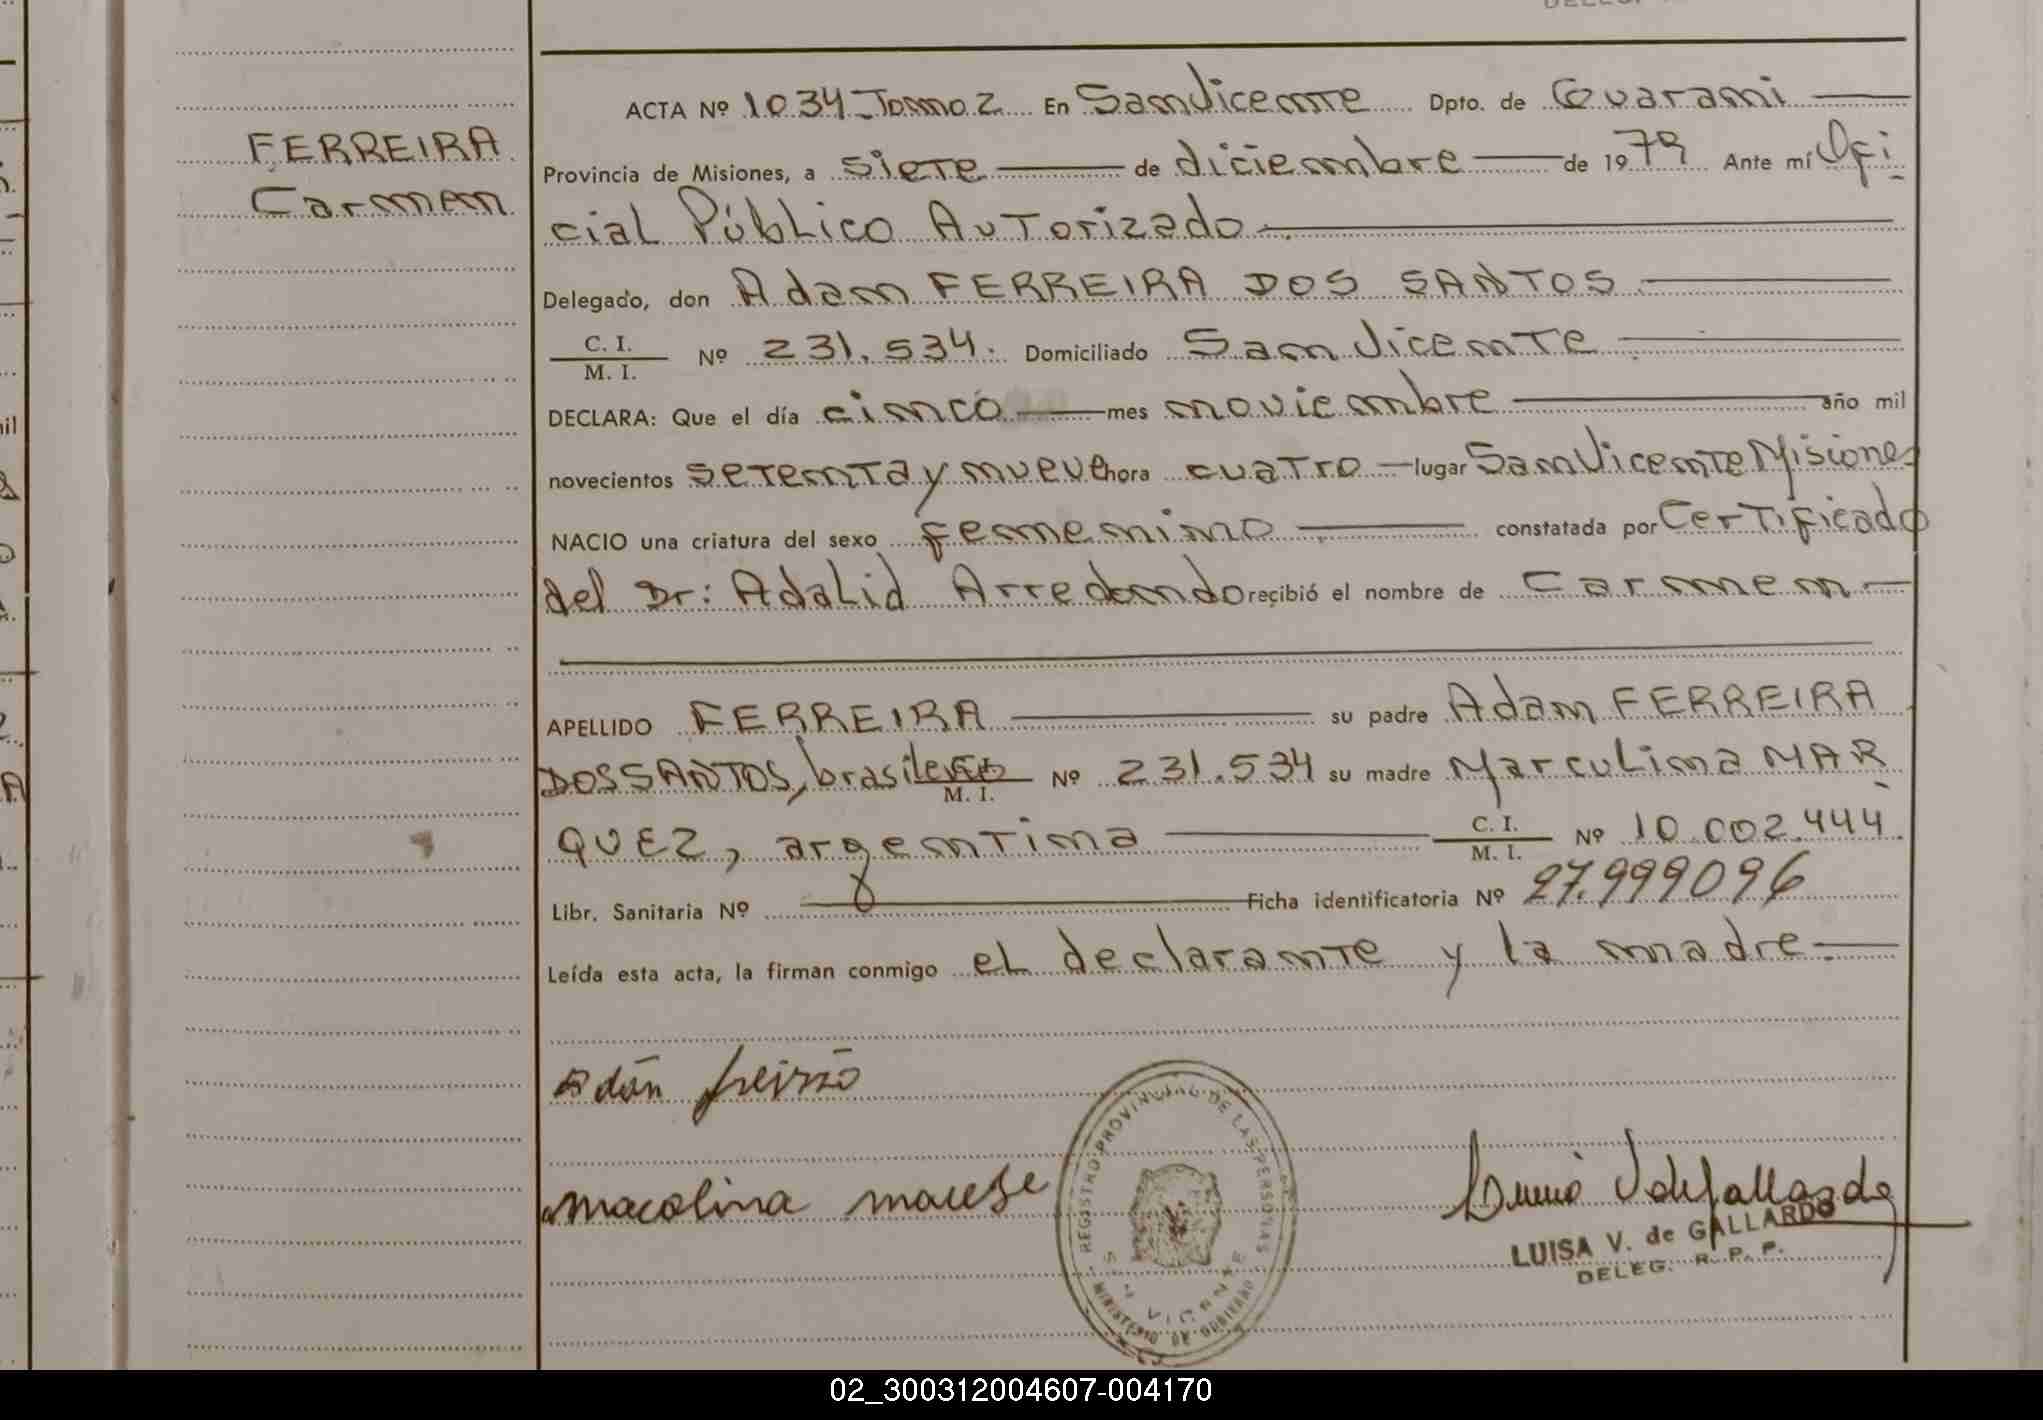 FERREIRA
Carmen
ACTA Nº 1034 Tomo 2 En San Vicente Dpto. de Guarani
Provincia de Misiones, a siete de diciembre de 1979 Ante mí Ofi
cial Público Autorizado
Delegado, don Adam FERREIRA DOS SANTOS
C. I.
M. I. Nº 231.534. Domiciliado San Vicente
DECLARA: Que el día cinco mes noviembre año mil
novecientos setenta y nueve hora cuatro lugar San Vicente Misiones
NACIO una criatura del sexo femenino constatada por Certificado
del Dr: Adalid Arredondo recibió el nombre de Carmen
APELLIDO FERREIRA su padre Adam FERREIRA
DOS SANTOS, brasileño M. I. Nº 231.534 su madre Marculina MAR
QUEZ, argentina C. I. M. I. Nº 10.002.444
Libr. Sanitaria Nº Ficha identificatoria Nº 27.999096
Leída esta acta, la firman conmigo el declarante y la madre.
adán
macolina
REGISTRO PROVINCIAL DE LAS PERSONAS
MINISTERIO DE GOBIERNO
SAN VICENTE
LUISA V. de GALLARDO
DELEG. R. P. P.
02_300312004607-004170